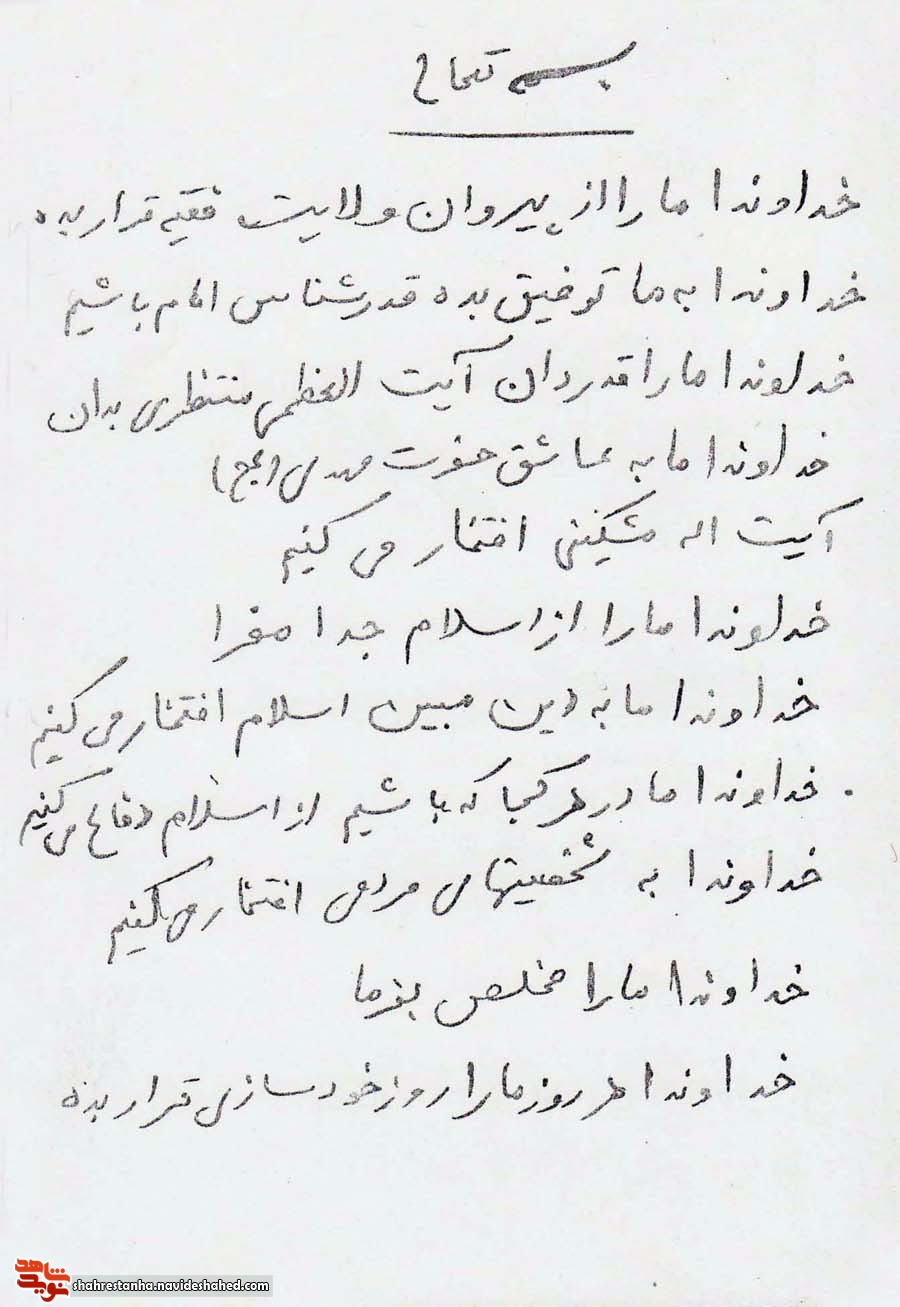 بسمه تعالی
خداوندا ما را از پیروان ولایت فقیه قرار بده
خداوندا به ما توفیق بده قدرشناس امام باشیم
خداوندا ما را قدردان آیت العظمی منتظری بدان
خداوندا ما به عاشق حضرت مهدی (عج)
آیت اله مشکینی افتخار می کنیم
خداوندا ما را از اسلام جدا مفرا
خداوندا ما به دین مبین اسلام افتخار می کنیم
خداوندا ما در هر کجا که باشیم از اسلام دفاع می کنیم
خداوندا به شخصیتهای مردمی افتخار می کنیم
خداوندا ما را مخلص بفرما
خداوندا هر روز ما را روز خودسازی قرار بده
نوید شاهد
shahrestanha.navideshahed.com